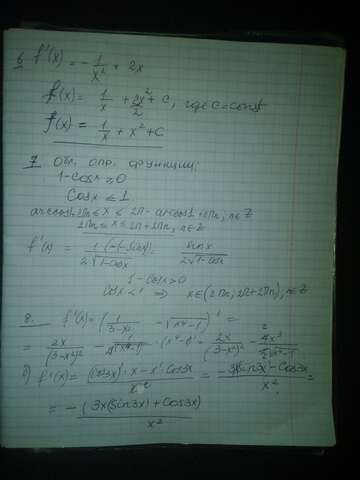 6 f'(x) = - 1/x² + 2x
f(x) = 1/x + 2x²/2 + C, где C = const
f(x) = 1/x + x² + C
7. Обл. опр. функции:
1 - cosx ≥ 0
cosx ≤ 1
arccos1 + 2πn ≤ x ≤ 2π - arccos1 + 2πn, n∈Z
2πn ≤ x ≤ 2π + 2πn, n∈Z
f'(x) = 1·(-(-sinx))/2√(1-cosx) = sinx/2√(1-cosx)
1 - cosx > 0
cosx < 1 ⇒ x∈(2πn, 2π+2πn), n∈Z
8. f'(x) = (1/(3-x²) - √(x⁴-1))' =
= 2x/(3-x²)² - 1/2√(x⁴-1) · (x⁴-1)' = 2x/(3-x²)² - 4x³/2√(x⁴-1)
б) f'(x) = ((cos3x)'·x - x'·cos3x)/x² = (-3(sin3x) - cos3x)/x² =
= -(3x(sin3x) + cos3x)/x²